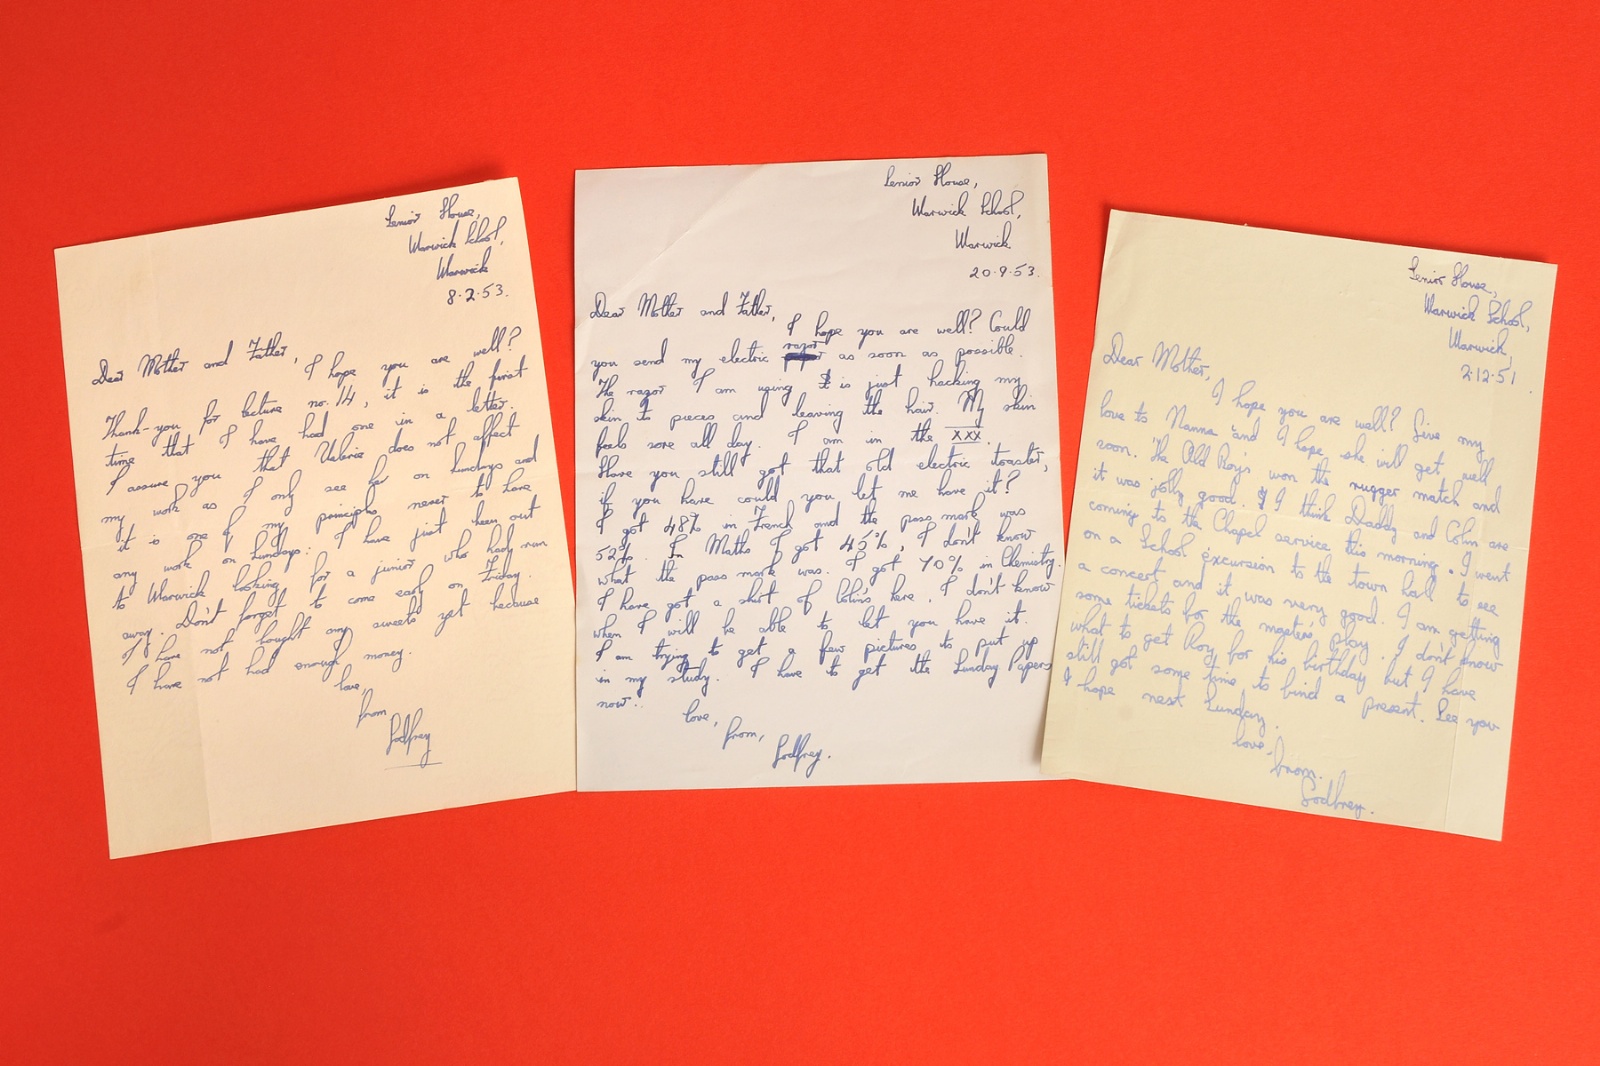 Senior House,
Warwick School,
Warwick
8.2.53.
Dear Mother and Father,
I hope you are well?
Thank-you for lecture no. 14, it is the first
time that I have had one in a letter.
I assure you that Valerie does not affect
my work as I only see her on Sundays and
it is one of my principles never to have
any work on Sundays. I have just been out
to Warwick looking for a junior who had run
away. Don't forget to come early on Friday.
I have not bought any sweets yet because
I have not had enough money.
love,
from
Godfrey
Senior House,
Warwick School,
Warwick
20.9.53.
Dear Mother and Father,
I hope you are well? Could
you send my electric razor as soon as possible.
The razor I am using is just hacking my
skin to pieces and leaving the hair. My skin
feels sore all day. I am in the XXX.
Have you still got that old electric toaster,
if you have could you let me have it?
I got 48% in French and the pass mark was
52%. In Maths I got 45%, I don't know
what the pass mark was. I got 70% in Chemistry.
I have got a shirt of Colin's here. I don't know
when I will be able to let you have it.
I am trying to get a few pictures to put up
in my study. I have to get the Sunday Papers
now.
love,
from,
Godfrey.
Senior House,
Warwick School,
Warwick,
2.12.51.
Dear Mother,
I hope you are well? Give my
love to Nanna and I hope she will get well
soon. The Old Boys won the rugger match and
it was jolly good. I think Daddy and Colin are
coming to the Chapel service this morning. I went
on a School excursion to the town hall to see
a concert and it was very good. I am getting
some tickets for the masters play. I don't know
what to get Roy for his birthday but I have
still got some time to find a present. See you
I hope next Sunday.
love,
from.
Godfrey.